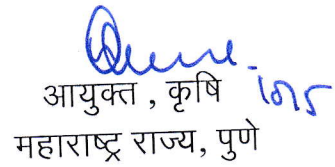 आयुक्त , कृषि
महाराष्ट्र राज्य, पुणे